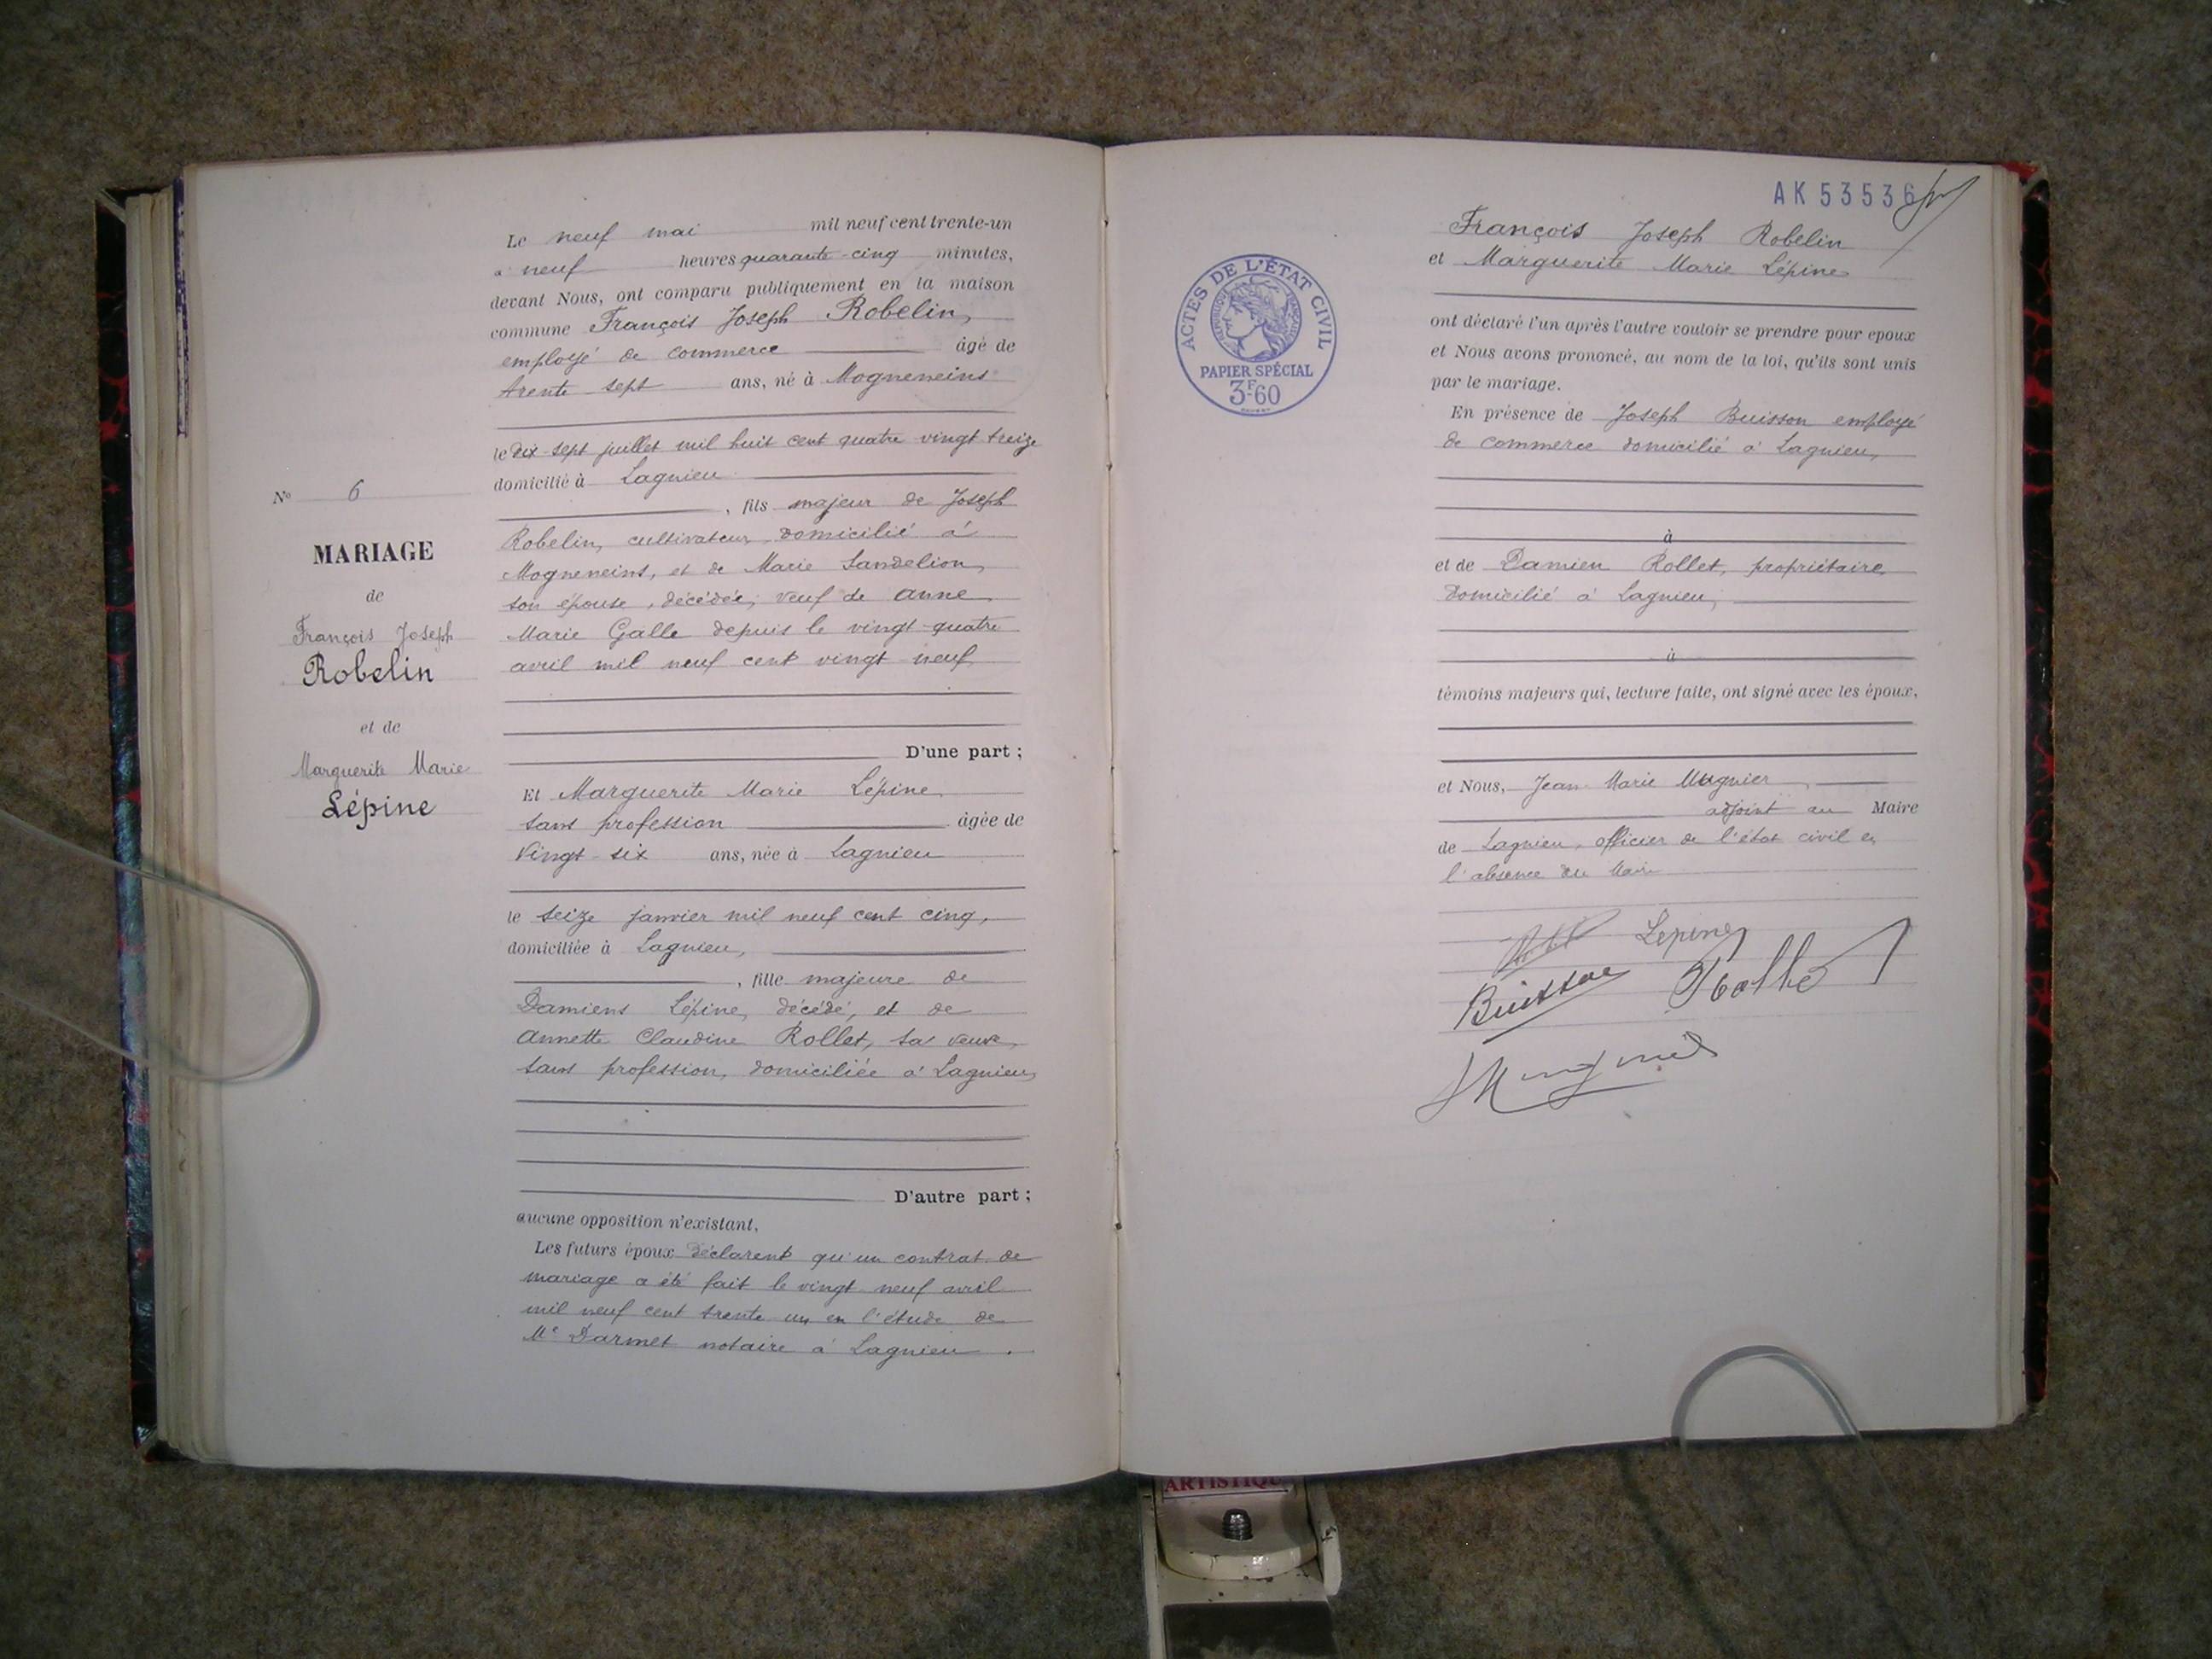 N° 6
MARIAGE
de
François Joseph
Robelin
et de
Marguerite Marie
Lépine
Le neuf mai mil neuf cent trente-un
à neuf heures quarante-cinq minutes,
devant Nous, ont comparu publiquement en la maison
commune François Joseph Robelin,
employé de commerce âgé de
trente sept ans, né à Mogneneins
le dix-sept juillet mil huit cent quatre vingt treize
domicilié à Lagnieu
, fils majeur de Joseph
Robelin, cultivateur, domicilié à
Mogneneins, et de Marie Sandelion,
son épouse, décédée; veuf de Anne
Marie Galle depuis le vingt-quatre
avril mil neuf cent vingt-neuf
D'une part ;
Et Marguerite Marie Lépine
sans profession âgée de
vingt-six ans, née à Lagnieu
le seize janvier mil neuf cent cinq,
domiciliée à Lagnieu,
, fille majeure de
Damiens Lépine, décédé, et de
Annette Claudine Rollet, sa veuve,
sans profession, domiciliée à Lagnieu,
D'autre part ;
aucune opposition n'existant,
Les futurs époux déclarent qu'un contrat de
mariage a été fait le vingt-neuf avril
mil neuf cent trente un en l'étude de
Me Darmet notaire à Lagnieu.
ACTES DE L'ÉTAT CIVIL
RÉPUBLIQUE FRANÇAISE
PAPIER SPÉCIAL
3F.60
AK 53536
François Joseph Robelin
et Marguerite Marie Lépine
ont déclaré l'un après l'autre vouloir se prendre pour époux
et Nous avons prononcé, au nom de la loi, qu'ils sont unis
par le mariage.
En présence de Joseph Buisson employé
de commerce domicilié à Lagnieu,
à
et de Damien Rollet, propriétaire
domicilié à Lagnieu,
à
témoins majeurs qui, lecture faite, ont signé avec les époux,
et Nous, Jean Marie Mugnier,
adjoint au Maire
de Lagnieu, officier de l'état civil en
l'absence du Maire
Lépine
Buisson Rollet
Mugnier
ARTISTIQUE